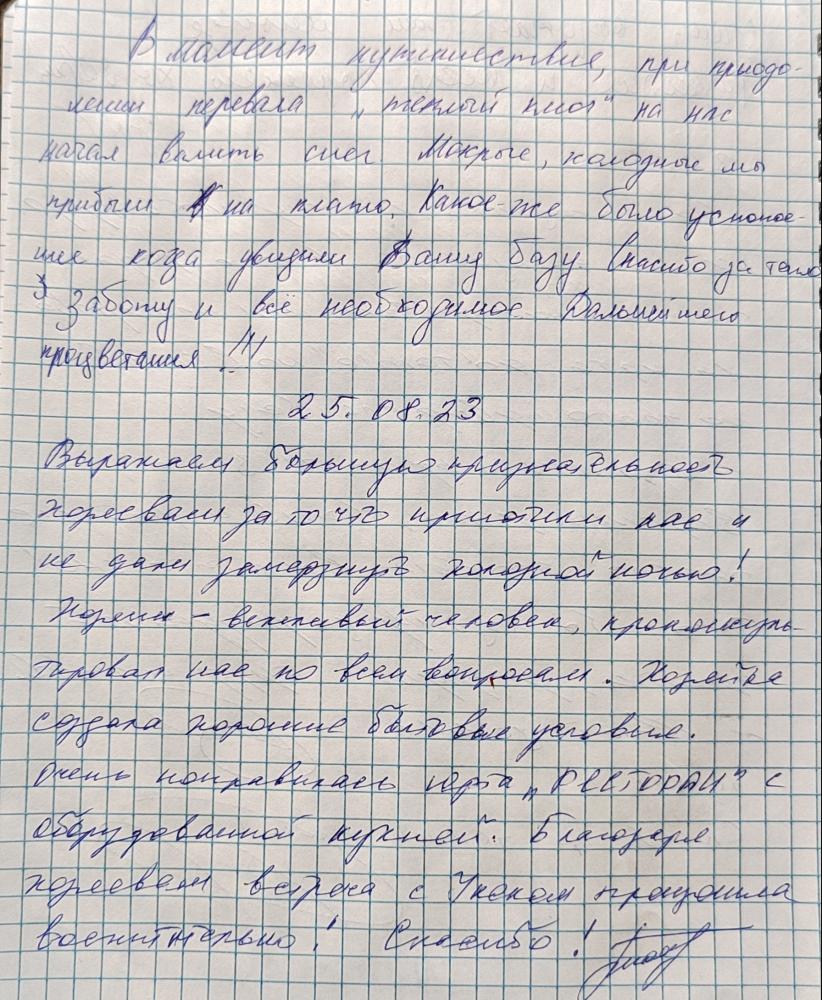 В момент путишествия, при приодо-
лении перевала "теплый ключ" на нас
начал валить снег. Мокрые, холодные мы
прибыли на плато. Какое-же было успокое-
ние когда увидили Вашу базу. Спасибо за тепло
заботу и всё необходимое. Дальнейшего
процветания!!!
25.08.23
Выражаем большую признательность
хозяевам за то что приютили нас и
не дали замерзнуть холодной ночью!
Хозяин - вежливый человек, проконсуль-
тировал нас по всем вопросам. Хозяйка
создала хорошие бытовые условия.
Очень понравилась юрта "РЕСТОРАН" с
оборудованной кухней. Благодаря
хозяевам встреча с Укоком прошла
восхитительно! Спасибо!